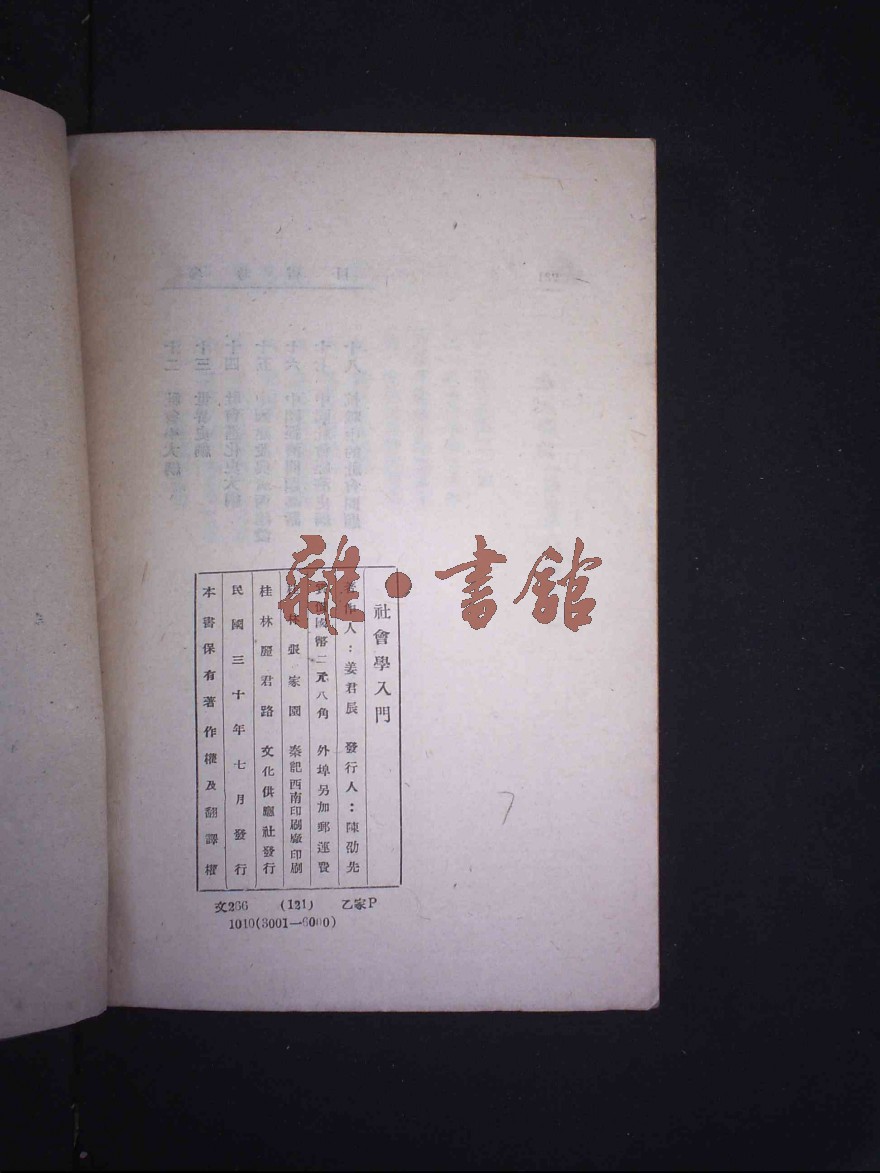 雜·書館
社會學入門
人：姜君辰 發行人：陳劭先
國幣二元八角 外埠另加郵運費
林張家園 秦記西南印刷廠印刷
桂林麗君路 文化供應社發行
民國三十年七月發行
本書保有著作權及翻譯權
文266 (121) 乙家P
1010(3001—6000)